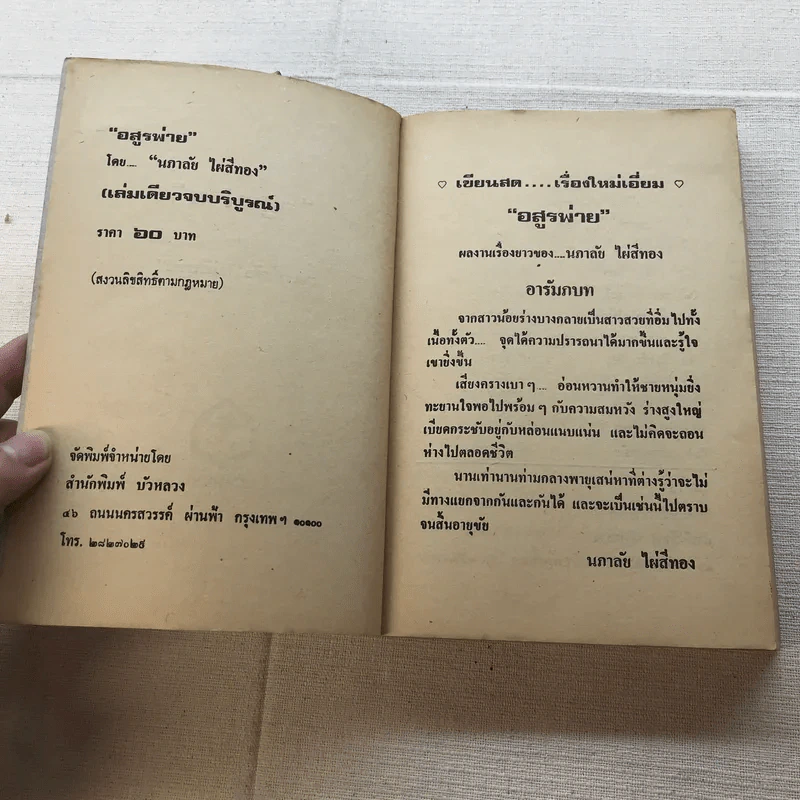 “อสูรพ่าย”
โดย.... “นภาลัย ไผ่สีทอง”
(เล่มเดียวจบบริบูรณ์)
ราคา ๖๐ บาท
(สงวนลิขสิทธิ์ตามกฎหมาย)
จัดพิมพ์จำหน่ายโดย
สำนักพิมพ์ บัวหลวง
๔๖ ถนนนครสวรรค์ ผ่านฟ้า กรุงเทพฯ ๑๐๑๐๐
โทร. ๒๘๒๗๐๒๕
♡ เขียนสด....เรื่องใหม่เอี่ยม ♡
“อสูรพ่าย”
ผลงานเรื่องยาวของ....นภาลัย ไผ่สีทอง
อารัมภบท
จากสาวน้อยร่างบางกลายเป็นสาวสวยที่อิ่มไปทั้ง
เนื้อทั้งตัว.... จุดไต้ความปรารถนาได้มากขึ้นและรู้ใจ
เขายิ่งขึ้น
เสียงครางเบา ๆ... อ่อนหวานทำให้ชายหนุ่มยิ่ง
ทะยานใจพอไปพร้อม ๆ กับความสมหวัง ร่างสูงใหญ่
เบียดกระชับอยู่กับหล่อนแนบแน่น และไม่คิดจะถอน
ห่างไปตลอดชีวิต
นานเท่านานท่ามกลางพายุเสน่หาที่ต่างรู้ว่าจะไม่
มีทางแยกจากกันและกันได้ และจะเป็นเช่นนี้ไปตราบ
จนสิ้นอายุขัย
นภาลัย ไผ่สีทอง